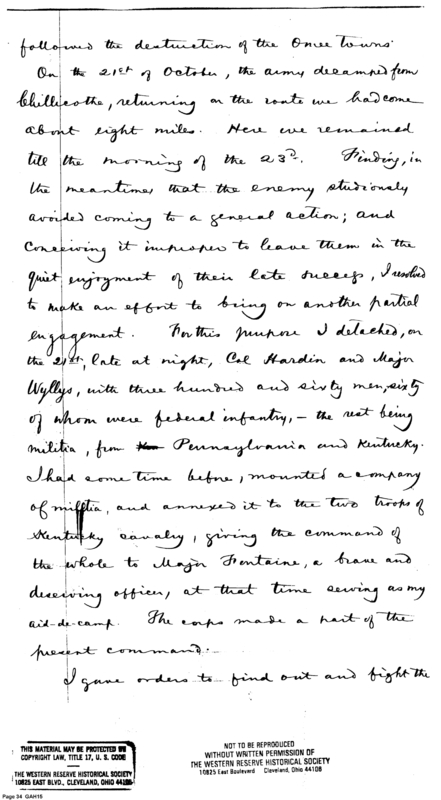 followed the destruction of the Omee Towns.
On the 21st of October, the army decamped from
Chillicothe, returning on the route we had come
about eight miles. Here we remained
till the morning of the 23d. Finding, in
the meantime, that the enemy studiously
avoided coming to a general action; and
conceiving it improper to leave them in the
quiet enjoyment of their late success, I resolved
to make an effort to bring on another partial
engagement. For this purpose I detached, on
the 21st, late at night, Col Hardin and Major
Wyllys, with three hundred and sixty men, sixty
of whom were federal infantry, – the rest being
militia, from Pennsylvania and Kentucky.
I had some time before, mounted a company
of militia, and annexed it to the two troops of
Kentucky cavalry, giving the command of
the whole to Major Fontaine, a brave and
deserving officer, at that time serving as my
aid-de-camp. The corps made a part of the
present command.–
I gave orders to find out and fight the
THIS MATERIAL MAY BE PROTECTED BY
COPYRIGHT LAW, TITLE 17, U. S. CODE
THE WESTERN RESERVE HISTORICAL SOCIETY
10825 EAST BLVD., CLEVELAND, OHIO 44106
NOT TO BE REPRODUCED
WITHOUT WRITTEN PERMISSION OF
THE WESTERN RESERVE HISTORICAL SOCIETY
10825 East Boulevard Cleveland, Ohio 44106
Page 34 GAH15